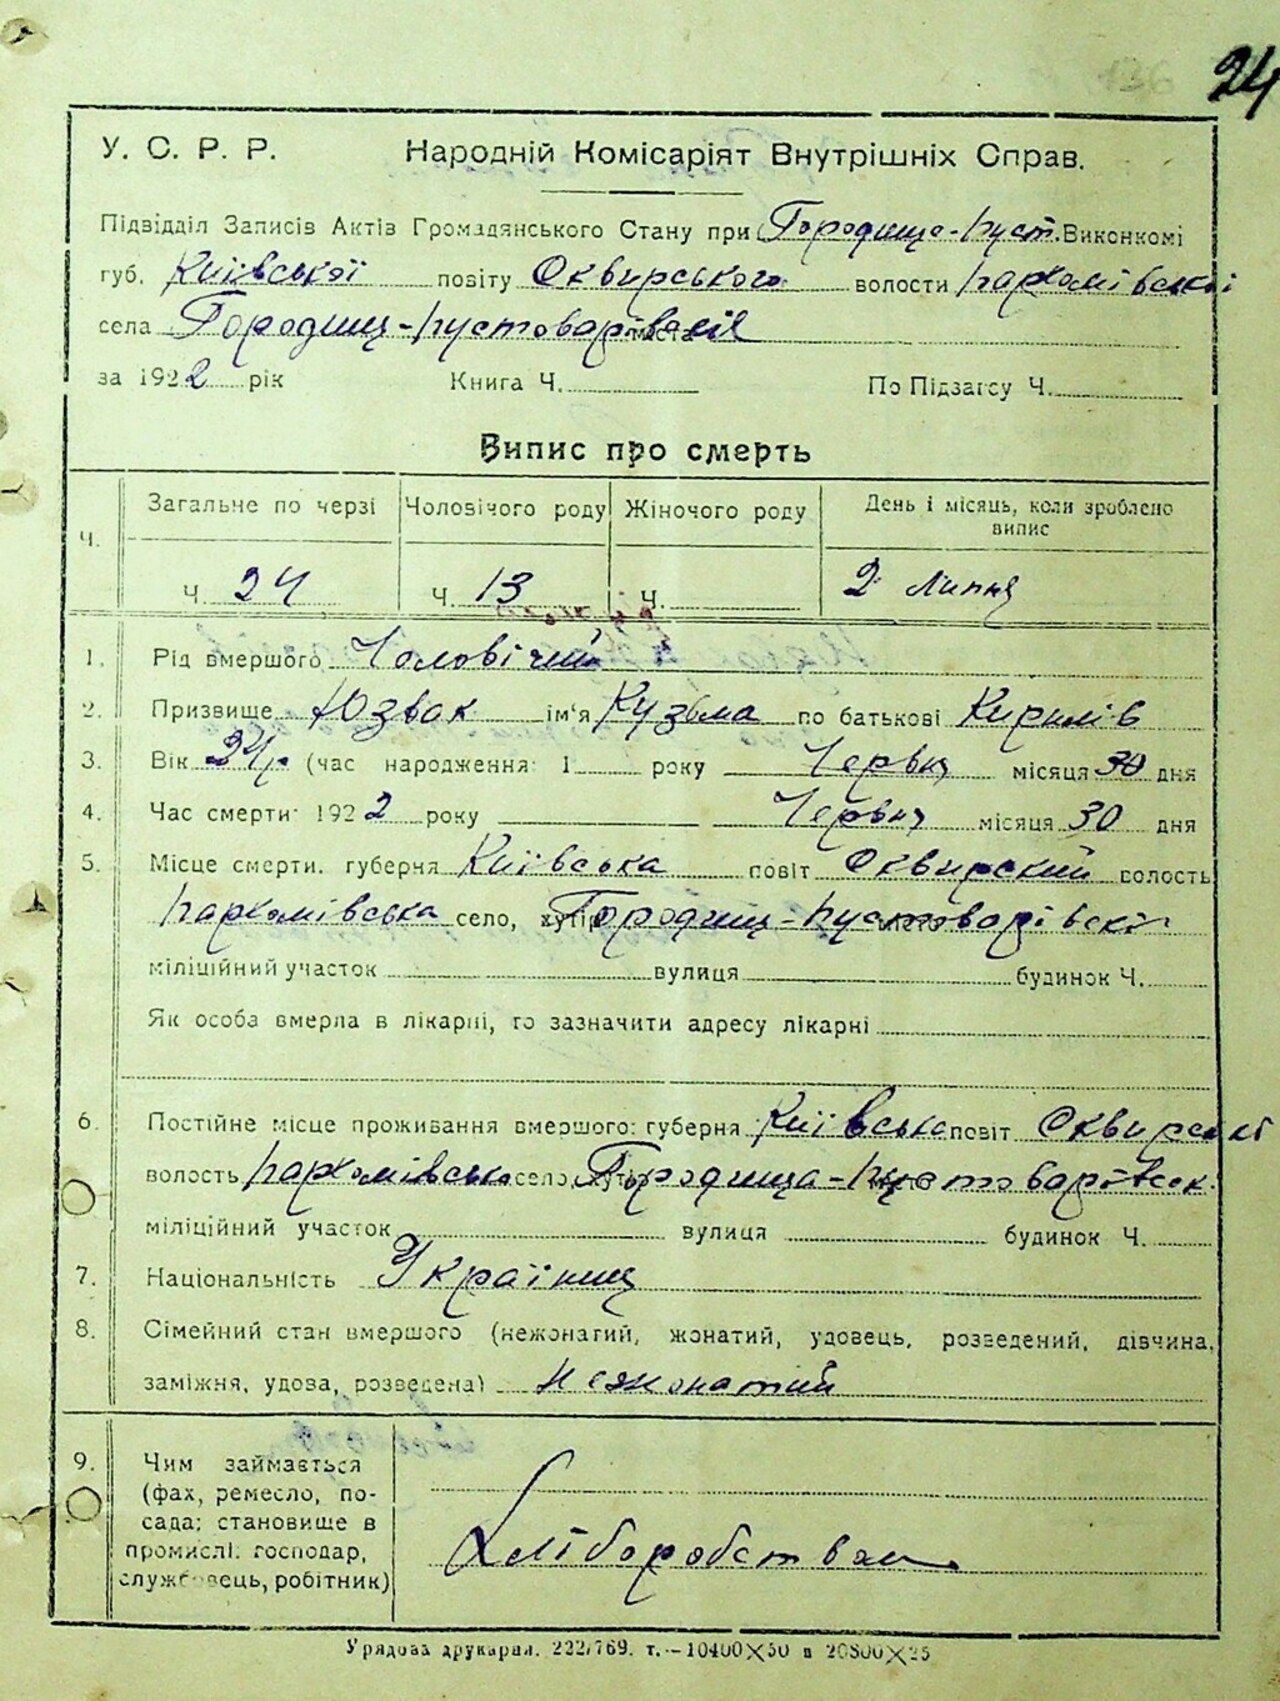 24
У. С. Р. Р. Народній Комісаріят Внутрішніх Справ.
Підвідділ Записів Актів Громадянського Стану при Городище-Пуст. Виконкомі
губ. Київської повіту Сквирського волости Пархомівської
села Городище-Пустоварівській
за 1922 рік Книга Ч. По Підзагсу Ч.
Випис про смерть
Ч. Загальне по черзі Чоловічого роду Жіночого роду День і місяць, коли зроблено випис
Ч. 24 Ч. 13 Ч. 2 Липня
1. Рід вмершого Чоловічий
2. Призвище Юзвак ім'я Кузьма по батькові Кирилів
3. Вік 24р. (час народження: 1 року Червня місяця 30 дня
4. Час смерти: 1922 року Червня місяця 30 дня
5. Місце смерти. губерня Київська повіт Сквирский волость
Пархомівська село, хутір Городищ-Пустоварівській
міліційний участок вулиця будинок Ч.
Як особа вмерла в лікарні, то зазначити адресу лікарні
6. Постійне місце проживання вмершого: губерня Київська повіт Сквирский
волость Пархомівська село, хутір Городища-Пустоварівськ.
міліційний участок вулиця будинок Ч.
7. Національність Українець
8. Сімейний стан вмершого (нежонатий, жонатий, удовець, розведений, дівчина,
заміжня, удова, розведена) нежонатий
9. Чим займається
(фах, ремесло, по-
сада; становище в
промислі: господар,
службовець, робітник)
Хліборобством
Урядова друкарня. 222/769. т.—10400×50 и 20800×25